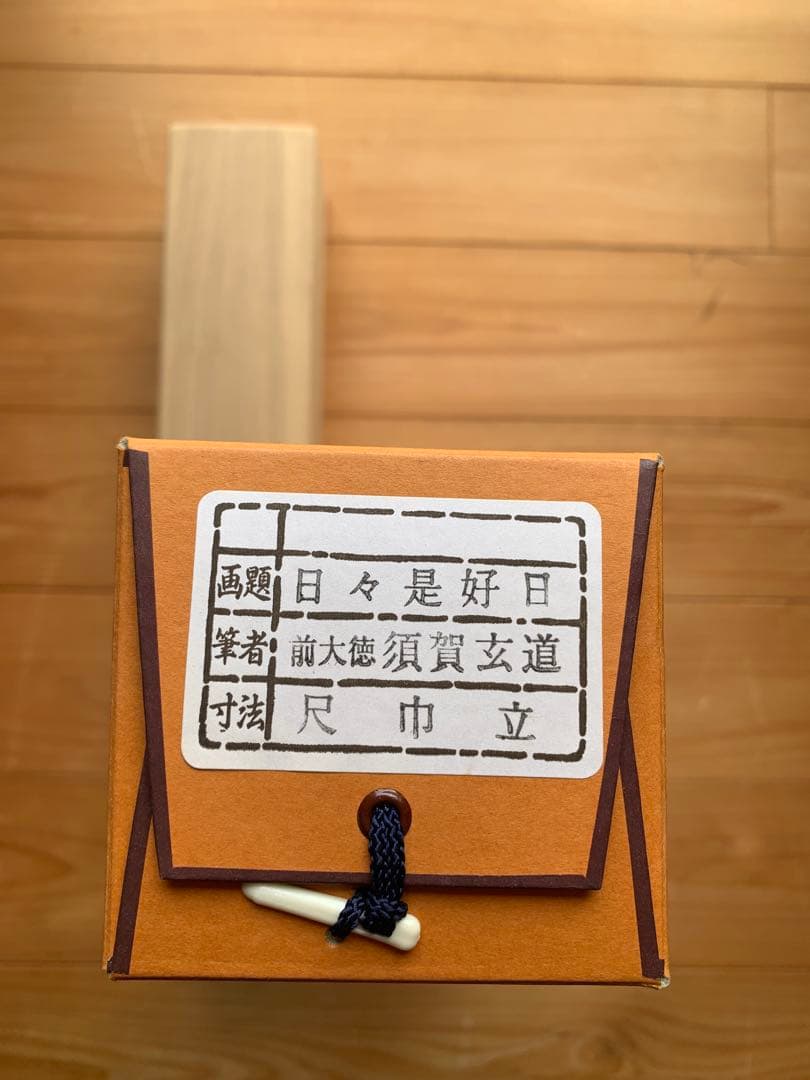 画題 日々是好日
筆者 前大徳 須賀玄道
寸法 尺巾立